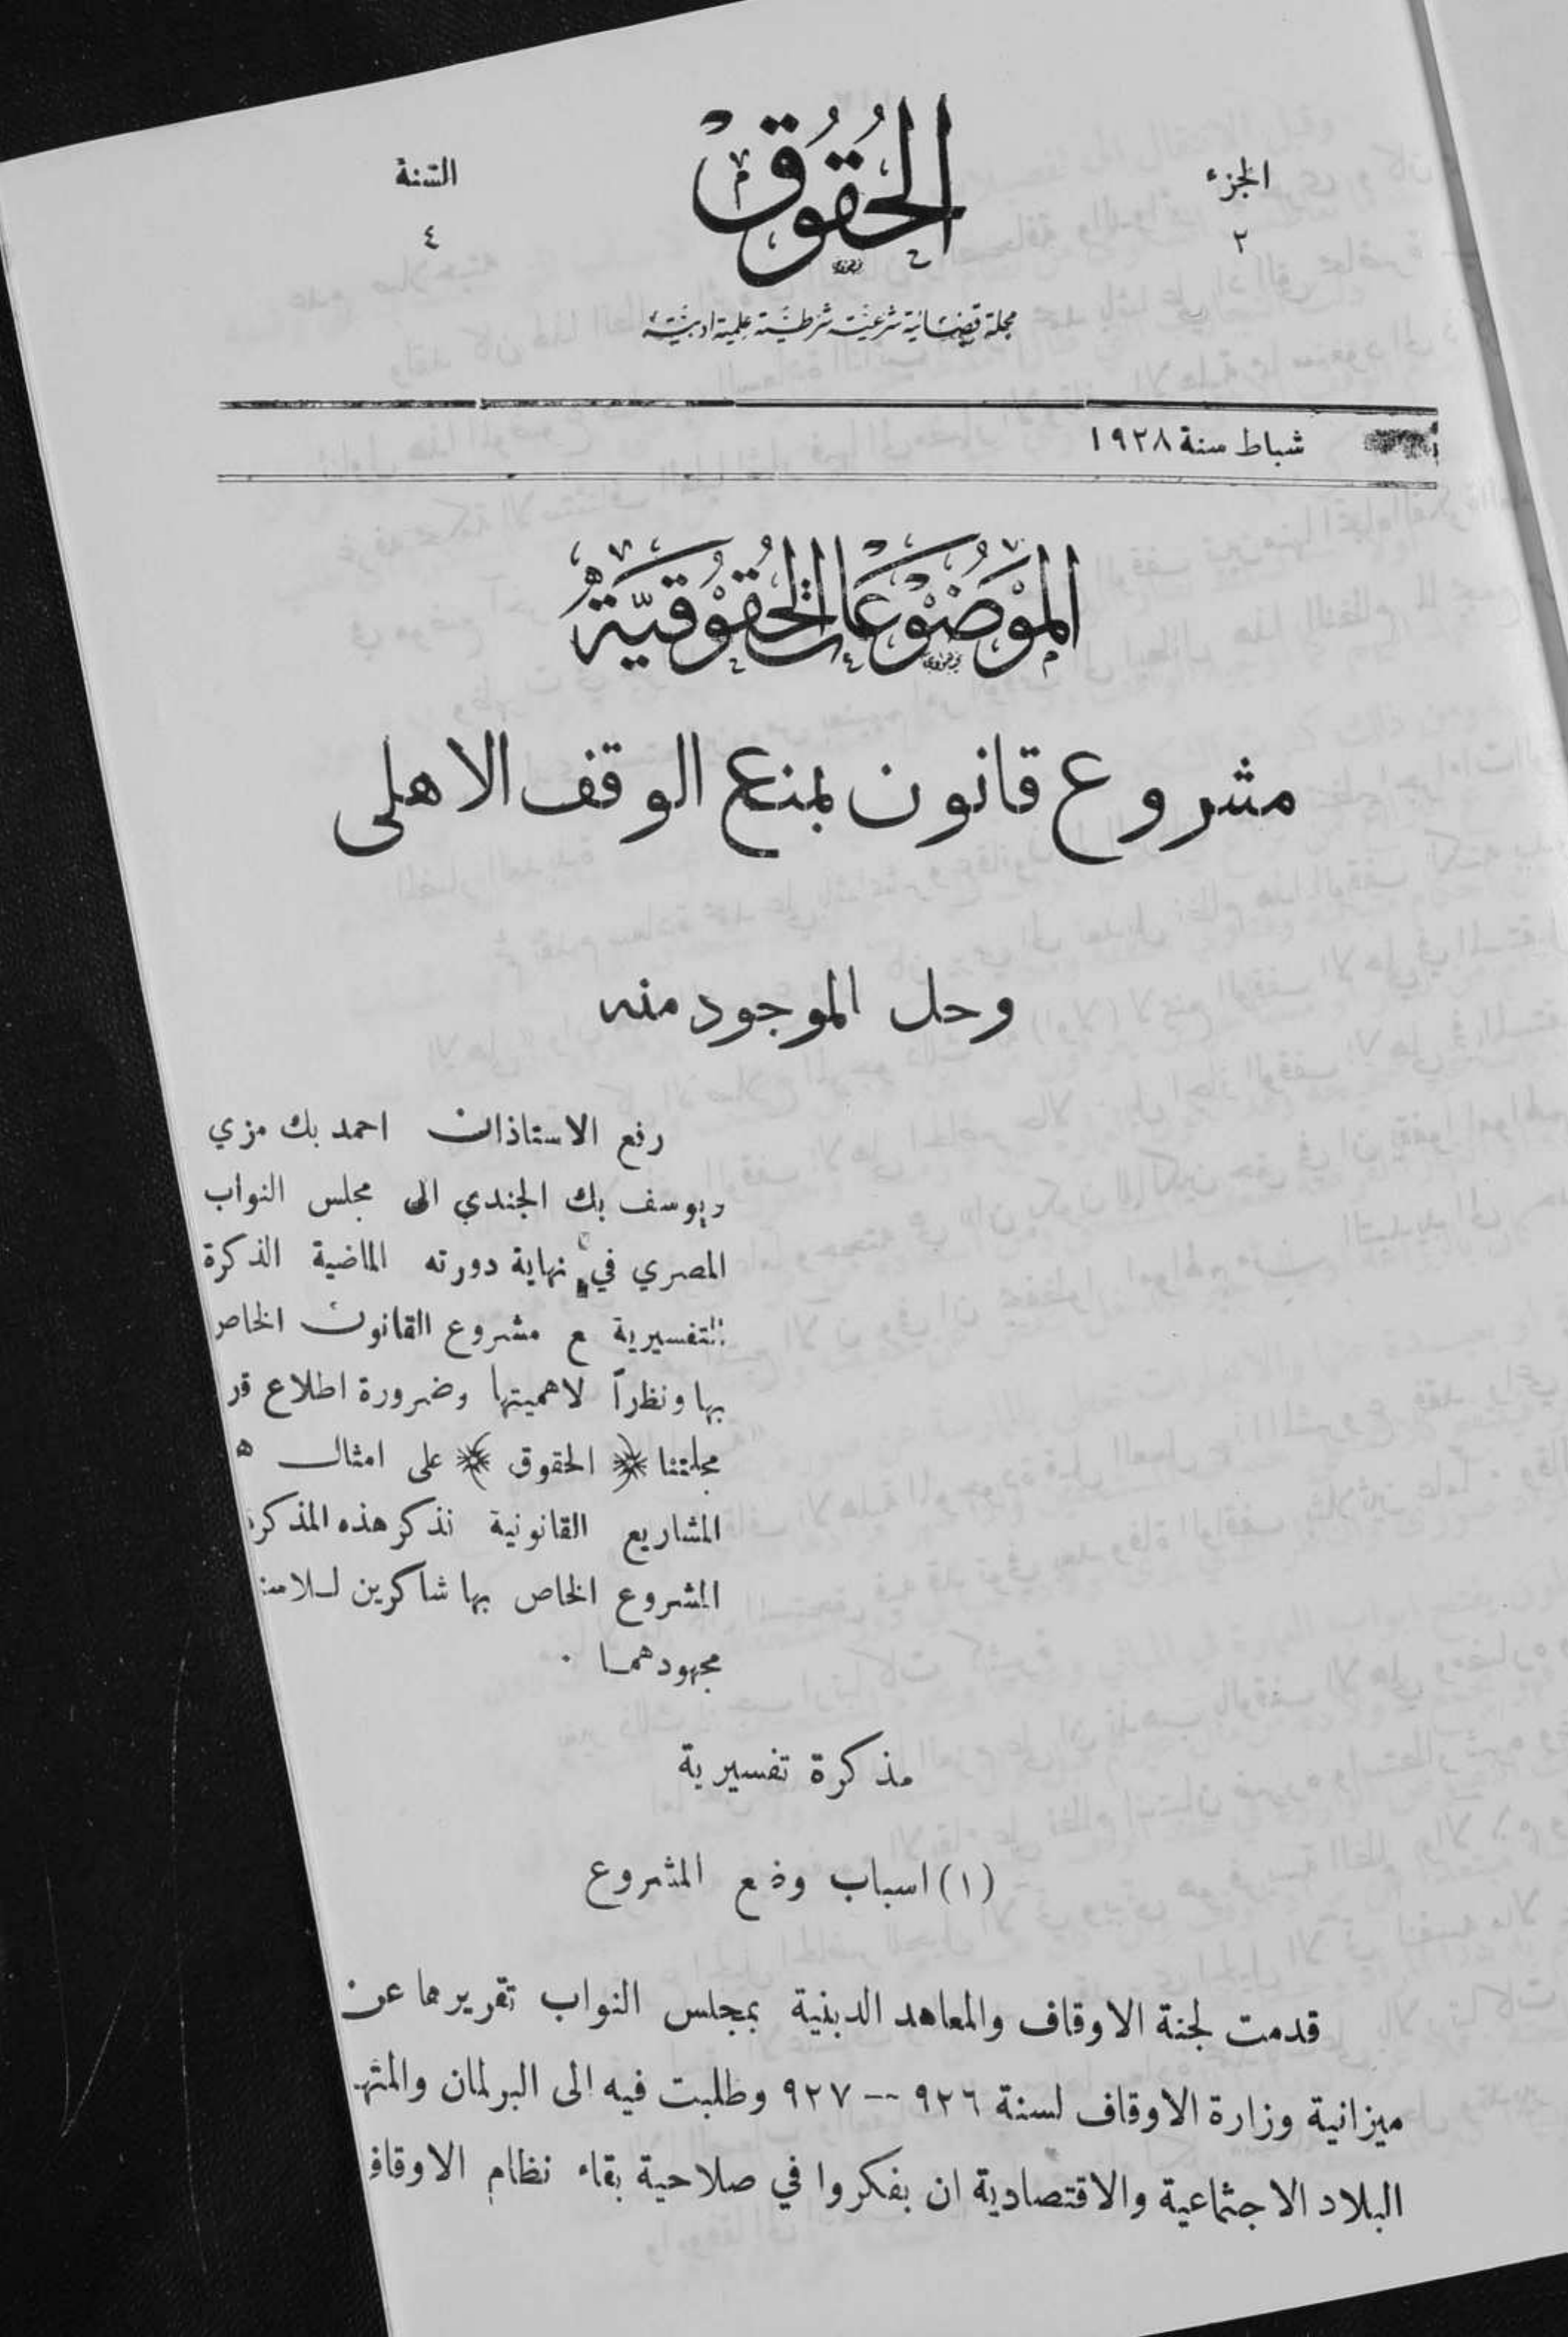 الجزء
٢
الحُقُوق
السّنة
٤
مجلة قضائية شرعية شرطية علمية ادبية
شباط سنة ١٩٢٨
المَوْضُوعَات الحُقُوقيَّة
مشروع قانون بمنع الوقف الاهلى
وحل الموجود منه
رفع الاستاذان احمد بك مزي
ويوسف بك الجندي الى مجلس النواب
المصري في نهاية دورته الماضية الذكرة
التفسيرية ع مشروع القانون الخاص
بها ونظراً لاهميتها وضرورة اطلاع قر
مجلتنا ﴿ الحقوق ﴾ على امثال ه
المشاريع القانونية نذكر هذه المذكرة
المشروع الخاص بها شاكرين
مجهودهما .
مذكرة تفسيرية
(١) اسباب وضع المشروع
قدمت لجنة الاوقاف والمعاهد الدينية بمجلس النواب تقريرها عن
ميزانية وزارة الاوقاف لسنة ٩٢٦ -- ٩٢٧ وطلبت فيه الى البرلمان
البلاد الاجتماعية والاقتصادية ان يفكروا في صلاحية بقاء نظام الاوقاف